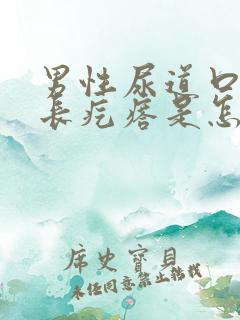 男性尿道口
长疙瘩是怎
席史宝贝
未经同意禁止转载